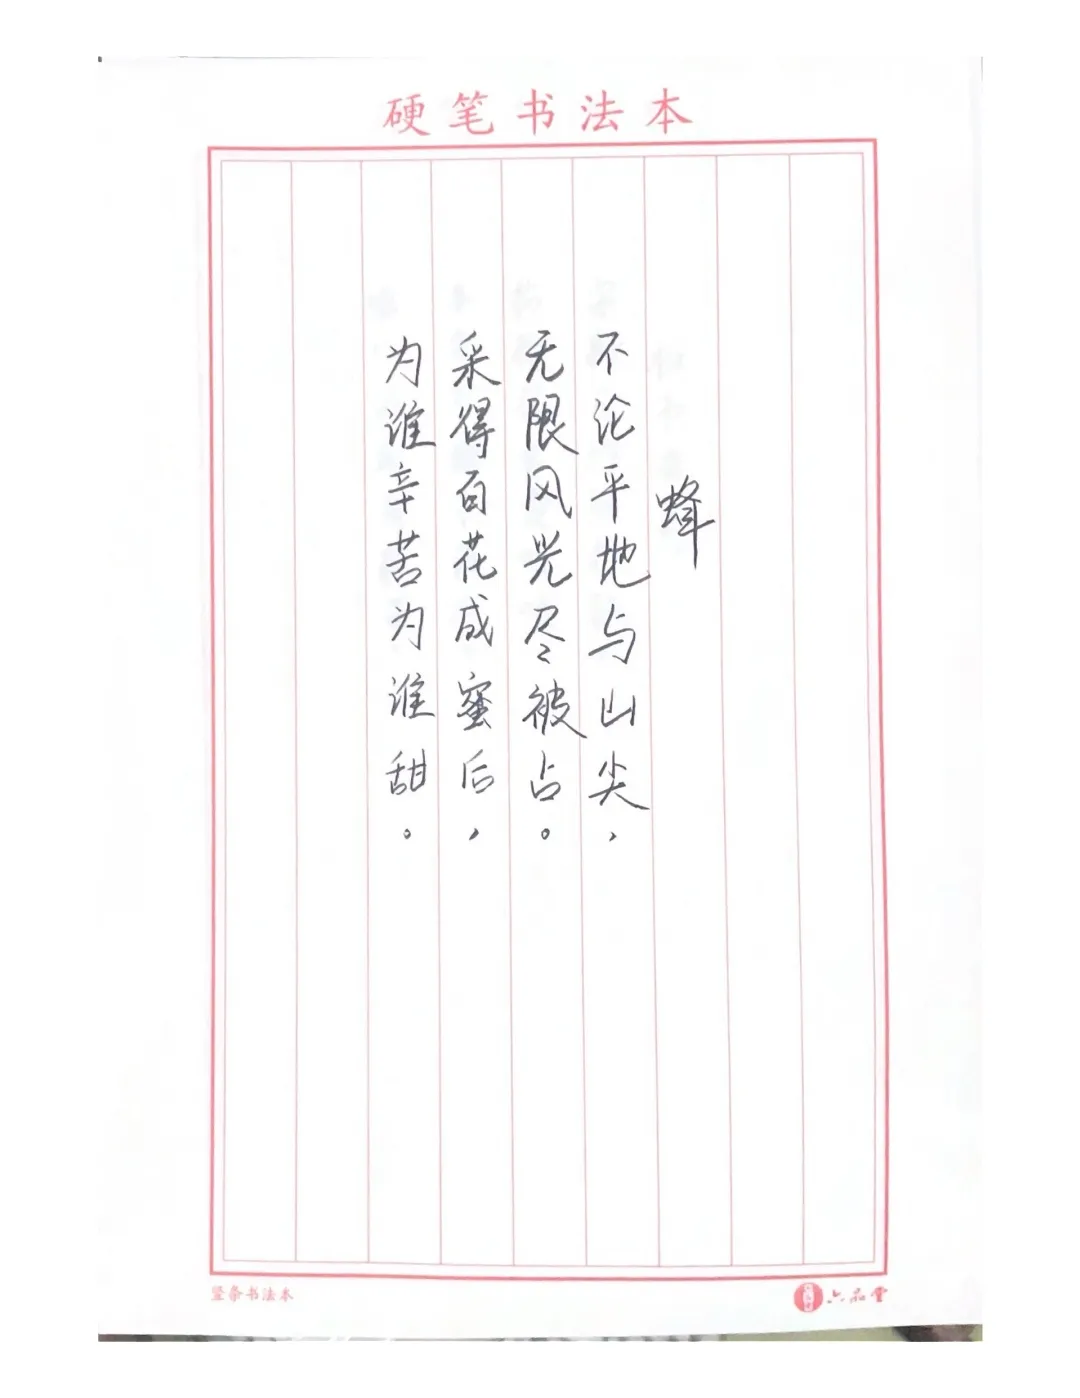 硬笔书法本
蜂
不论平地与山尖，
无限风光尽被占。
采得百花成蜜后，
为谁辛苦为谁甜。
竖条书法本
六品堂